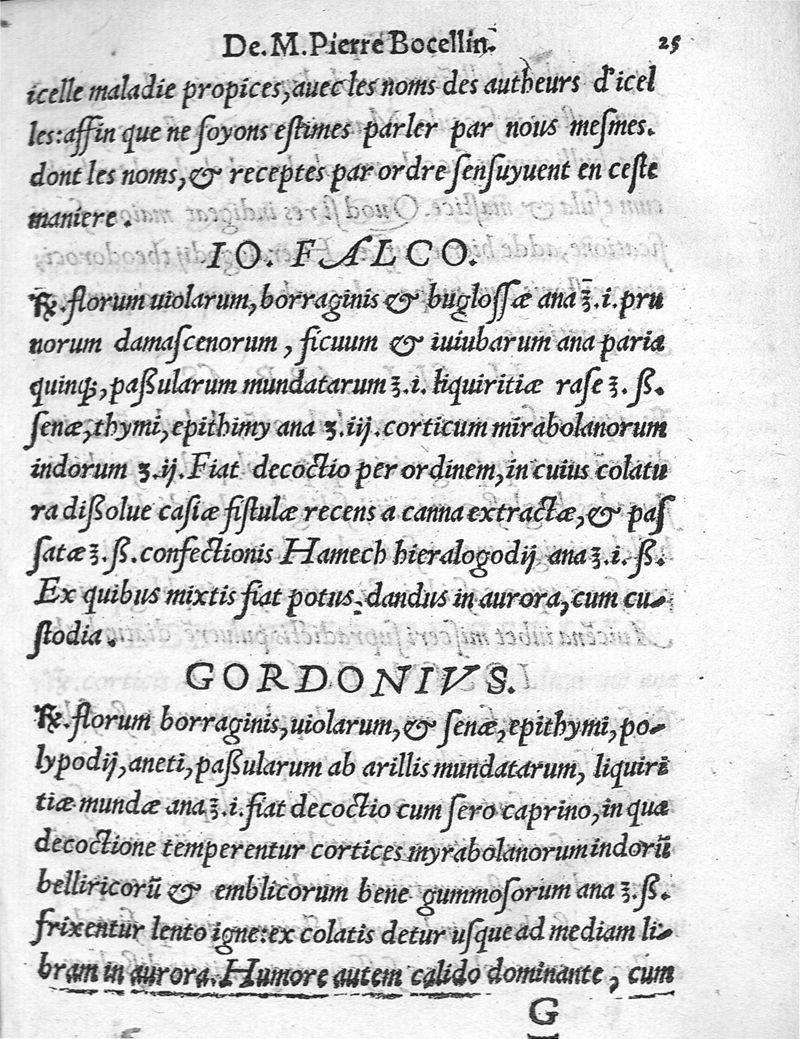 De. M. Pierre Bocellin. 25
icelle maladie propices, auec les noms des autheurs d'icel
les: affin que ne soyons estimes parler par nous mesmes.
dont les noms, & receptes par ordre sensuyuent en ceste
maniere.
IO. FALCO.
℞. florum uiolarum, borraginis & buglossæ ana ℥. i. pru
norum damascenorum, ficuum & iuiubarum ana paria
quinq;, paßularum mundatarum ℥. i. liquiritiæ rase ℥. ß.
senæ, thymi, epithimy ana ʒ. iij. corticum mirabolanorum
indorum ʒ. ij. Fiat decoctio per ordinem, in cuius colatu
ra dißolue casiæ fistulæ recens a canna extractæ, & pas
satæ ℥. ß. confectionis Hamech hieralogodij ana ℥. i. ß.
Ex quibus mixtis fiat potus, dandus in aurora, cum cu-
stodia.
GORDONIVS.
℞. florum borraginis, uiolarum, & senæ, epithymi, po-
lypodij, aneti, paßularum ab arillis mundatarum, liquiri
tiæ mundæ ana ℥. i. fiat decoctio cum sero caprino, in qua
decoctione temperentur cortices myrabolanorum indorũ
belliricorũ & emblicorum bene gummosorum ana ℥. ß.
frixentur lento igne: ex colatis detur usque ad mediam li-
bram in aurora. Humore autem calido dominante, cum
G